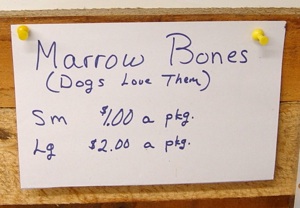 Marrow Bones
(Dogs Love Them)
Sm $1.00 a pkg.
Lg $2.00 a pkg.